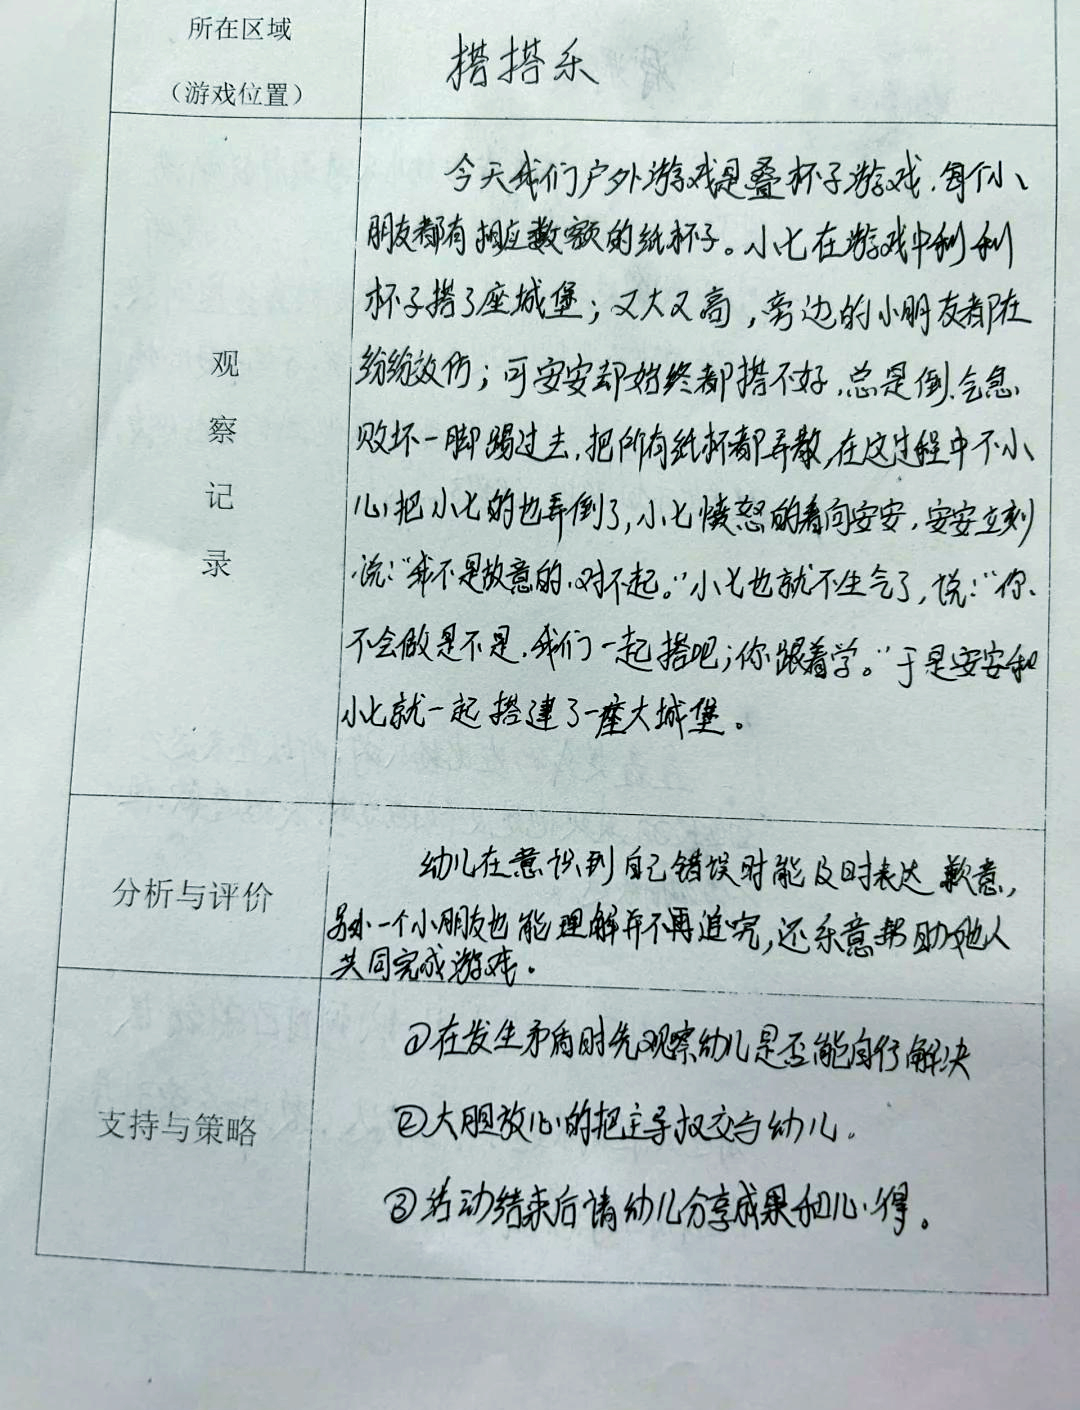 所在区域
（游戏位置）
搭搭乐
观
察
记
录
今天我们户外游戏是叠杯子游戏，每个小
朋友都有相应数额的纸杯子。小七在游戏中利利
杯子搭了座城堡；又大又高，旁边的小朋友都在
纷纷效仿；可安安却始终都搭不好，总是倒，气急
败坏一脚踢过去，把所有纸杯都弄散，在这过程中不小
心把小七的也弄倒了，小七愤怒的看向安安，安安立刻
说：“我不是故意的，对不起。”小七也就不生气了，说：“你
不会做是不是，我们一起搭吧；你跟着学。”于是安安和
小七就一起搭建了一座大城堡。
分析与评价
幼儿在意识到自己错误时能及时表达歉意，
另外一个小朋友也能理解并不再追究，还乐意帮助他人
共同完成游戏。
支持与策略
①在发生矛盾时先观察幼儿是否能自行解决
②大胆放心的把主导权交与幼儿。
③活动结束后请幼儿分享成果和心得。